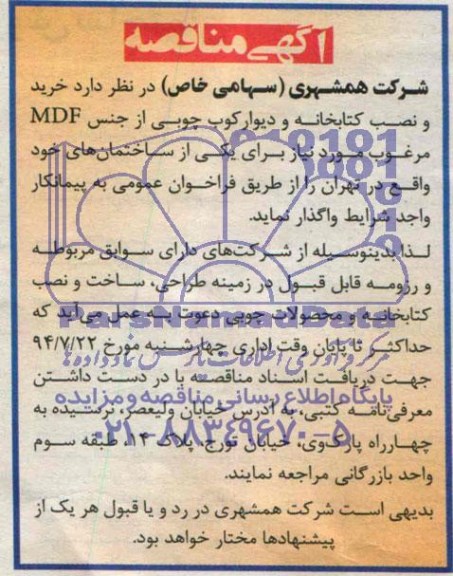 آگهی مناقصه
شرکت همشهری (سهامی خاص) در نظر دارد خرید
و نصب کتابخانه و دیوارکوب چوبی از جنس MDF
مرغوب مورد نیاز برای یکی از ساختمان‌های خود
واقع در تهران را از طریق فراخوان عمومی به پیمانکار
واجد شرایط واگذار نماید.
لذا بدینوسیله از شرکت‌های دارای سوابق مربوطه
و رزومه قابل قبول در زمینه طراحی، ساخت و نصب
کتابخانه و محصولات چوبی دعوت به عمل می‌آید که
ParsNamadData
حداکثر تا پایان وقت اداری چهارشنبه مورخ ۹۴/۷/۲۲
مرکز فرآوری اطلاعات پارس نماد داده‌ها
جهت دریافت اسناد مناقصه با در دست داشتن
پایگاه اطلاع رسانی مناقصه و مزایده
معرفی‌نامه کتبی، به آدرس خیابان ولیعصر، نرسیده به
چهارراه پارک‌وی، خیابان تورج، پلاک ۱۴، طبقه سوم
۰۲۱-۸۸۳۴۹۶۷۰-۵
واحد بازرگانی مراجعه نمایند.
بدیهی است شرکت همشهری در رد و یا قبول هر یک از
پیشنهادها مختار خواهد بود.